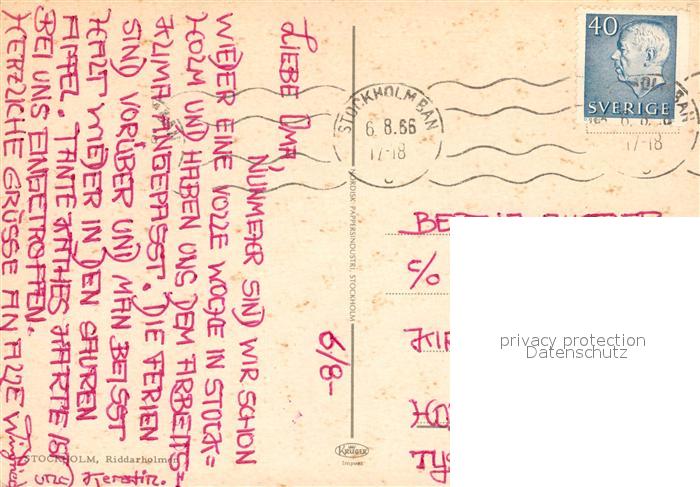 LIEBE OMA,
NUNMEHR SIND WIR SCHON
WIEDER EINE VOLLE WOCHE IN STOCK=
HOLM UND HABEN UNS DEM ARBEITS=
KLIMA ANGEPASST. DIE FERIEN
SIND VORÜBER UND MAN BEISST
HALT WIEDER IN DEN SAUREN
APFEL. TANTE KATHES KARTE IST
BEI UNS EINGETROFFEN.
HERZLICHE GRÜSSE AN ALLE
Kerstin.
6/8-
STOCKHOLM, Riddarholmen
NORDISK PAPPERSINDUSTRI, STOCKHOLM
KRÜGER
Import
40
SVERIGE
STOCKHOLM BAN
6.8.66
17-18
BAN
6.8.
17-18
C/O
privacy protection
Datenschutz